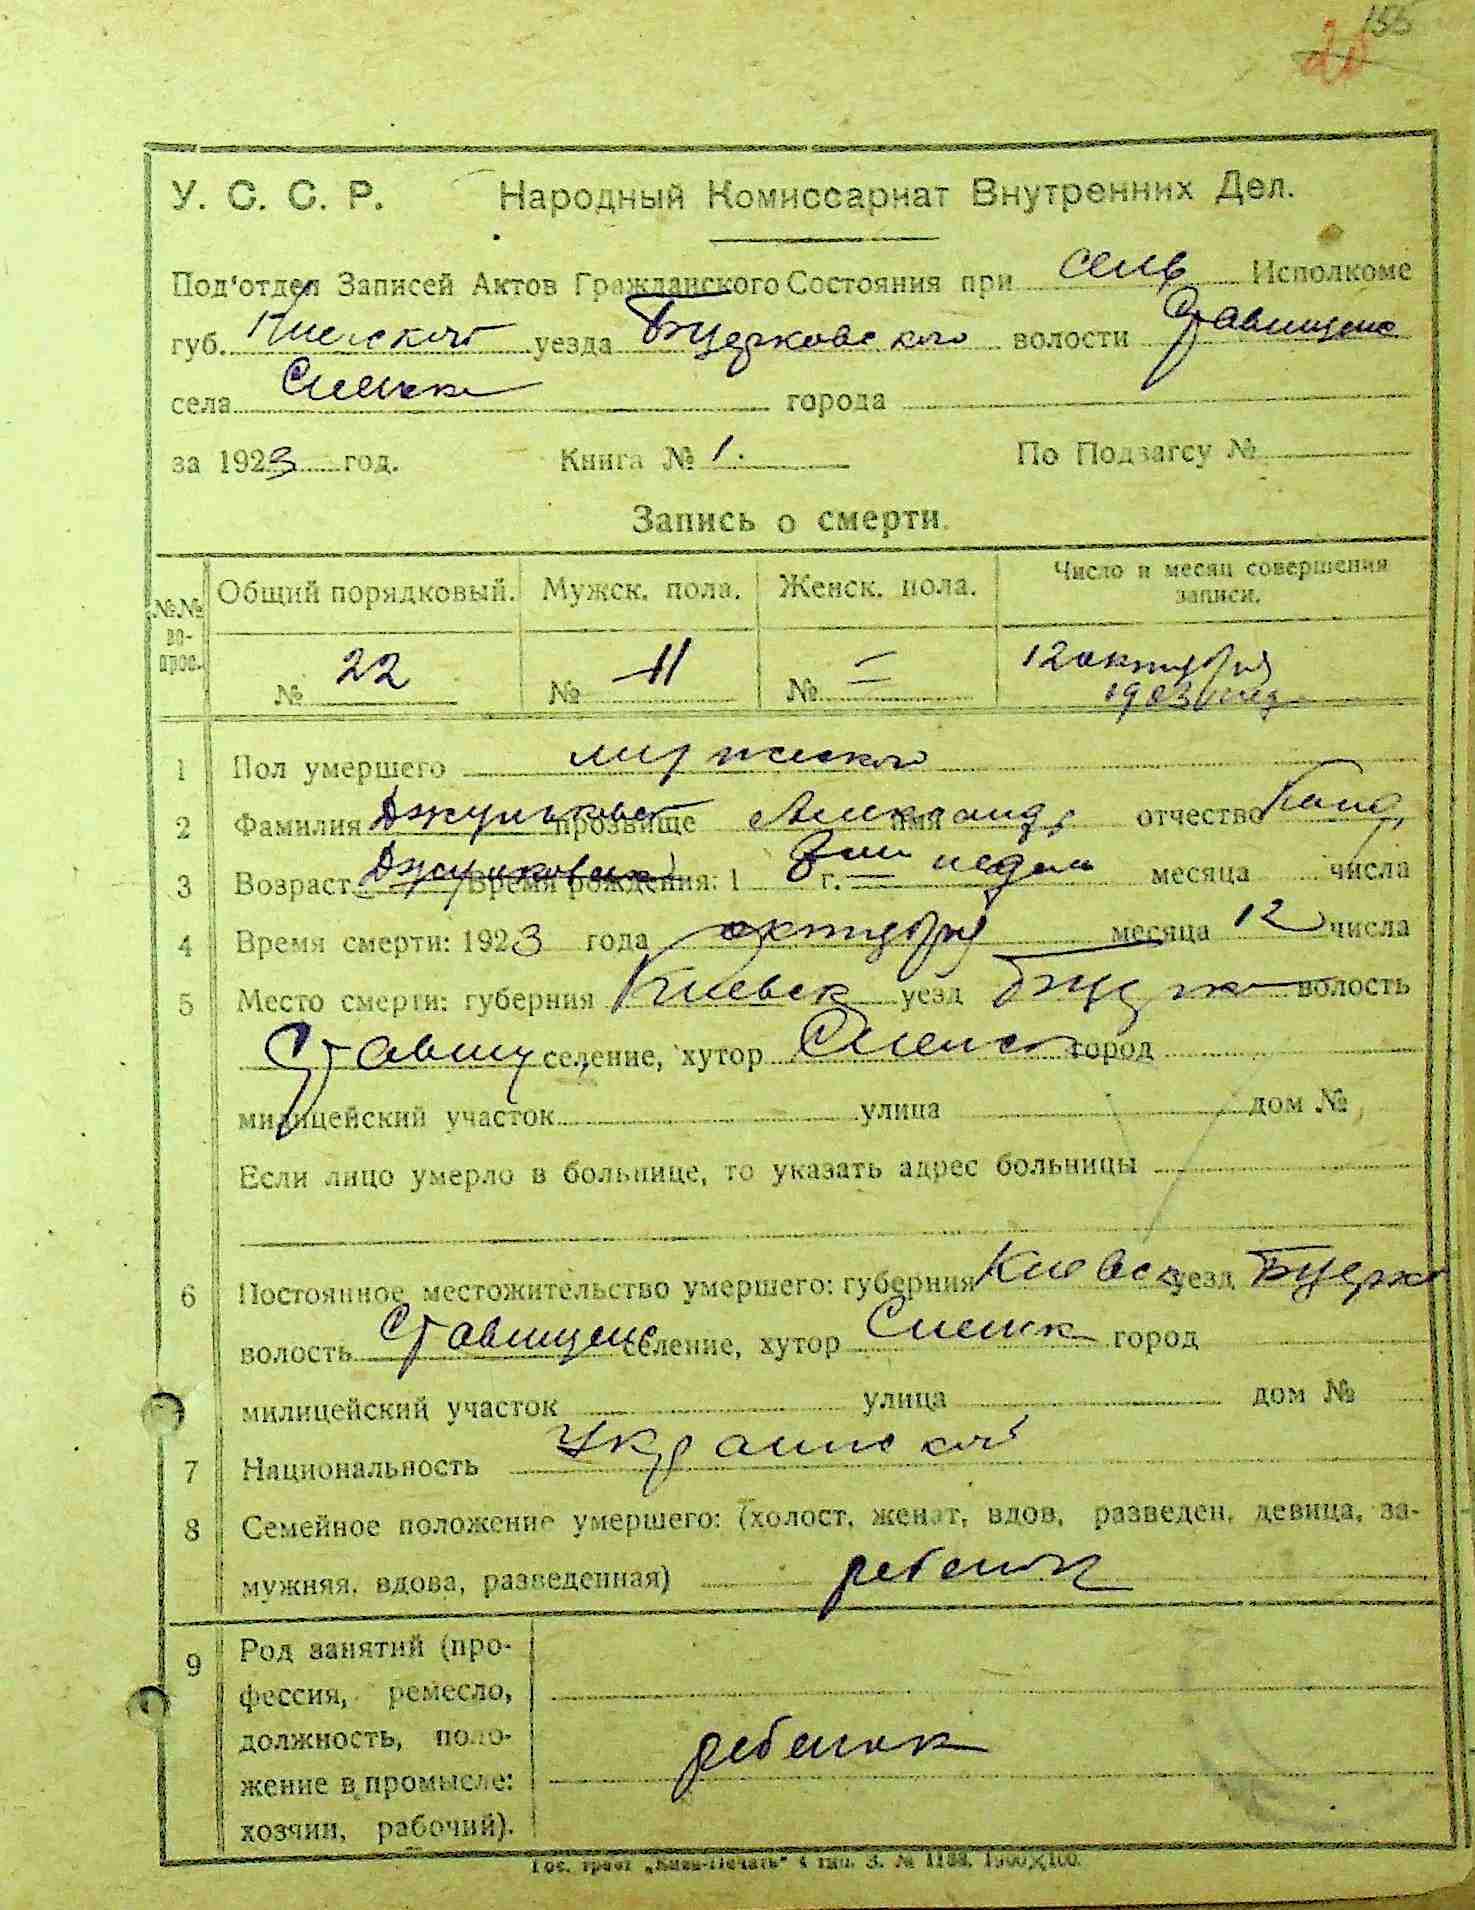 155
20
У. С. С. Р. Народный Комиссариат Внутренних Дел.
Под'отдел Записей Актов Гражданского Состояния при сельв Исполкоме
губ. Киевской уезда Бцерковского волости Ставищенс
села города
за 1923 год. Книга № 1. По Подзагсу №
Запись о смерти.
№№ вопрос. Общий порядковый. Мужск. пола. Женск. пола. Число и месяц совершения записи.
№ 22 № 11 № = 12 октября
1923 год
1 Пол умершего мужского
2 Фамилия прозвище Александр имя отчество
3 Возраст Время рождения: 1 г. недель месяца числа
4 Время смерти: 1923 года октября месяца 12 числа
5 Место смерти: губерния Киевск уезд Бцерк волость
Ставищ селение, хутор город
милицейский участок улица дом №
Если лицо умерло в больнице, то указать адрес больницы
6 Постоянное местожительство умершего: губерния Киевск уезд Бцерк
волость Ставищенс селение, хутор город
милицейский участок улица дом №
7 Национальность Украинской
8 Семейное положение умершего: (холост, женат, вдов, разведен, девица, за-
мужняя, вдова, разведенная) ребенок
9 Род занятий (про-
фессия, ремесло,
должность, поло- ребенок
жение в промысле:
хозяин, рабочий).
Гос. трест „Киев-Печать“ 4 тип. З. № 1188. 1500×100.